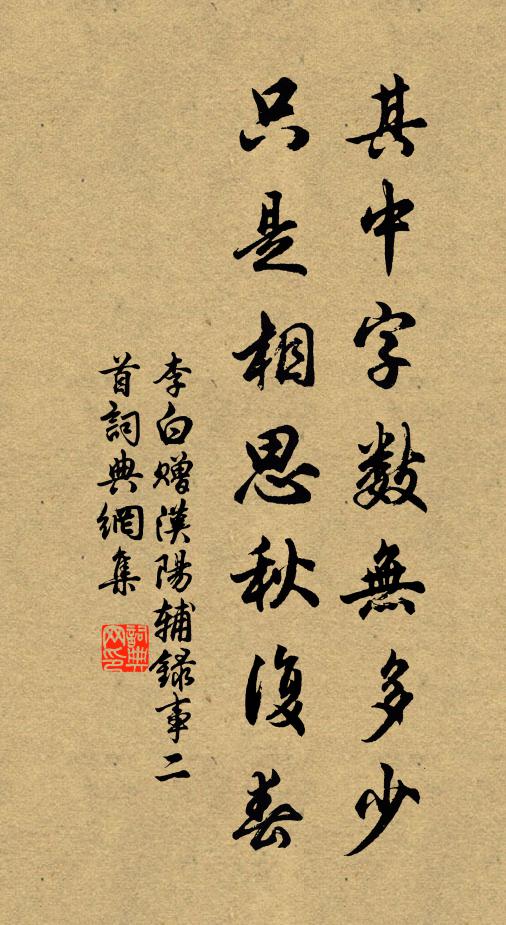 其中字數無多少
只是相思秋復春
李白贈漢陽輔錄事二
首詞典網集
詞典
网印